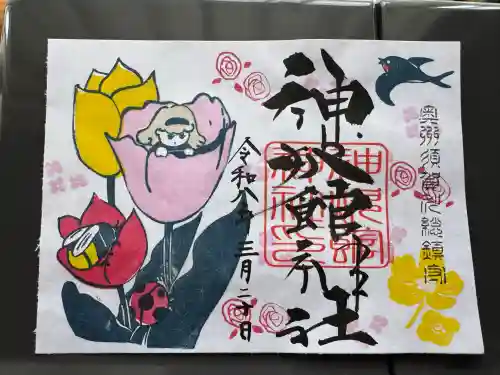 奥州須賀川総鎮守
神炊館神社
令和八年
三月二十日